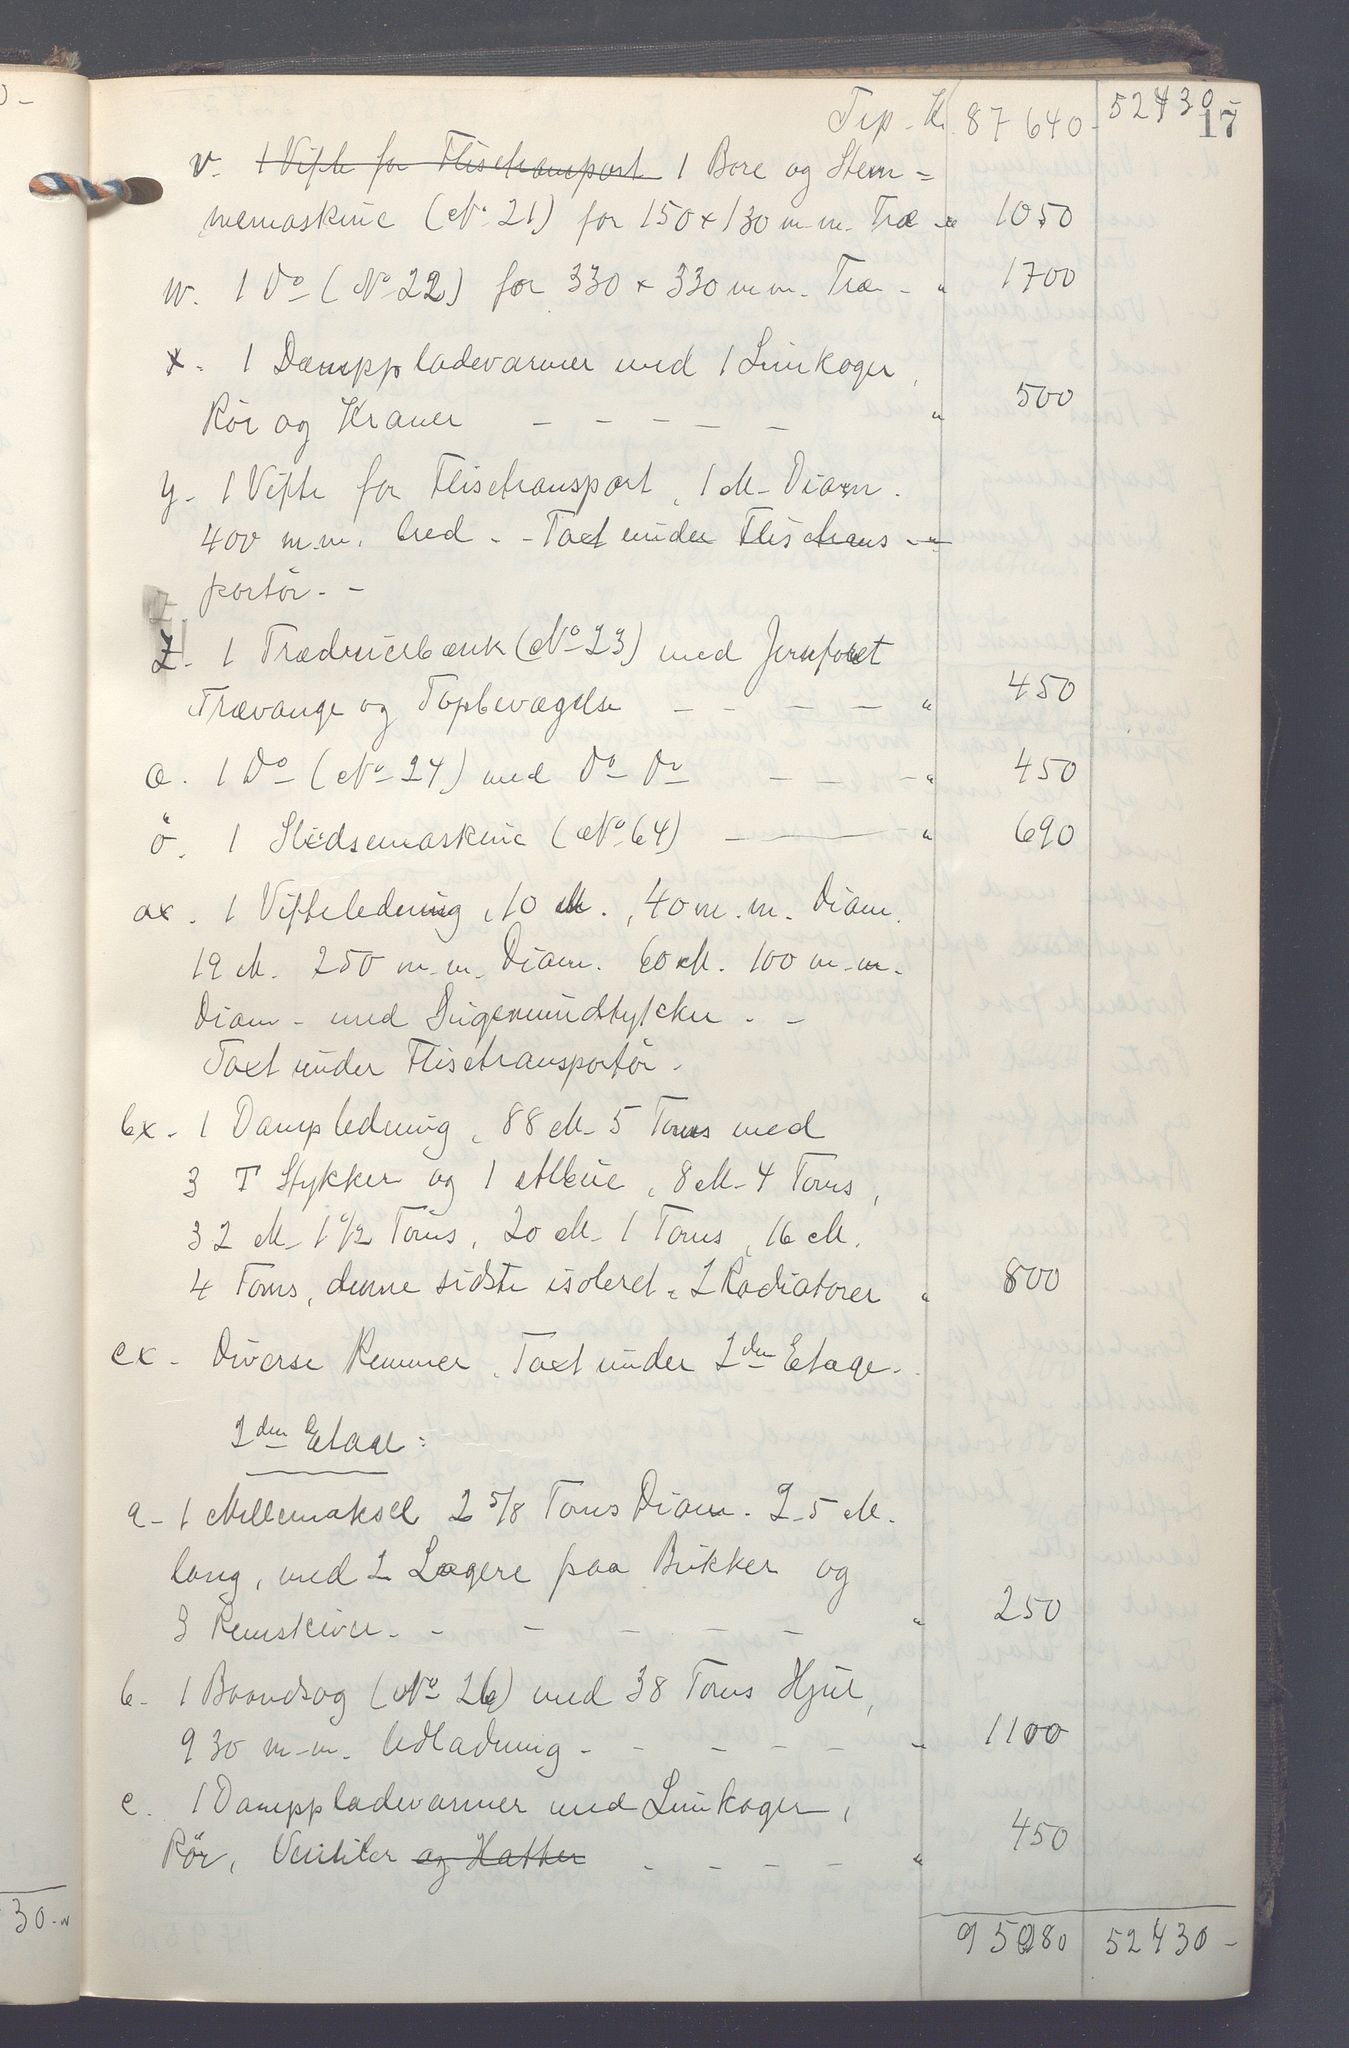 Trp. Kr. 87 640- 52430- 17
v. 1 Vifte for Flistransport 1 Bore og Stem=
memaskine (No 21) for 150 x 130 m.m. Træ - " 1050
w. 1 Do (No 22) for 330 x 330 m.m. Træ - " 1700
x. 1 Damppladevarmer med 1 Limkoger,
Rör og Kraner - - - - - " 500
y. 1 Vifte for Flistransport, 1 M. Diam.
400 m.m. bred. - Taxt under Flistrans - "
portör. -
z. 1 Trædreierbænk (No 23) med Jernforet
Trævange og Topbevægelse - - - - " 450
æ. 1 Do (No 24) med Do Do - - - " 450
ö. 1 Slidsemaskine (No 64) - - " 690
ax. 1 Vifteledning, 10 M., 40 m.m. Diam.
19 M. 250 m.m. Diam. 60 M. 100 m.m.
Diam. med Sugemundstykker. -
Taxt under Flistransportör.
bx. 1 Dampledning, 88 M. 5 Toms med
3 T Stykker og 1 Albue, 8 M. 4 Toms,
32 M. 1 1/2 Toms, 20 M. 1 Toms, 16 M.
4 Toms, denne sidste isoleret. 2 Radiatorer " 800
cx. Diverse Remmer. Taxt under 2den Etage.
2den Etage:
a. 1 Mellemaksel 2 5/8 Toms Diam. 2.5 M.
lang, med 2 Lagere paa Bukker og
3 Remskiver. - - - - - " 250
b. 1 Baandsag (No 26) med 38 Toms Hjul,
930 m.m. Udladning. - - - - - " 1100
c. 1 Damppladevarmer med Limkoger,
Rör, Ventiler og Hatter - - - - " 450
95080 52430-
30.-